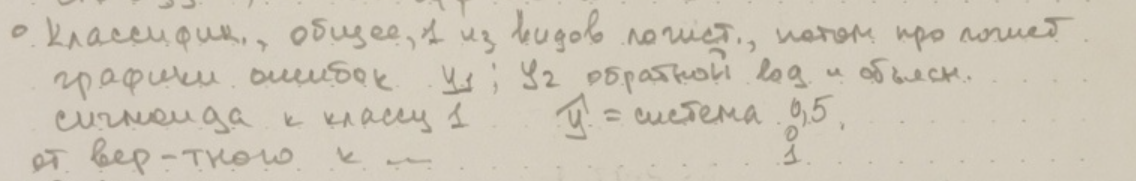 о Классифик., общее, 1 из видов логист., потом про логист.
графики ошибок y1; y2 обратной log и объясн.
сигмоида к классу 1 ȳ = система 0,5.
от вер-тного к — 0
1